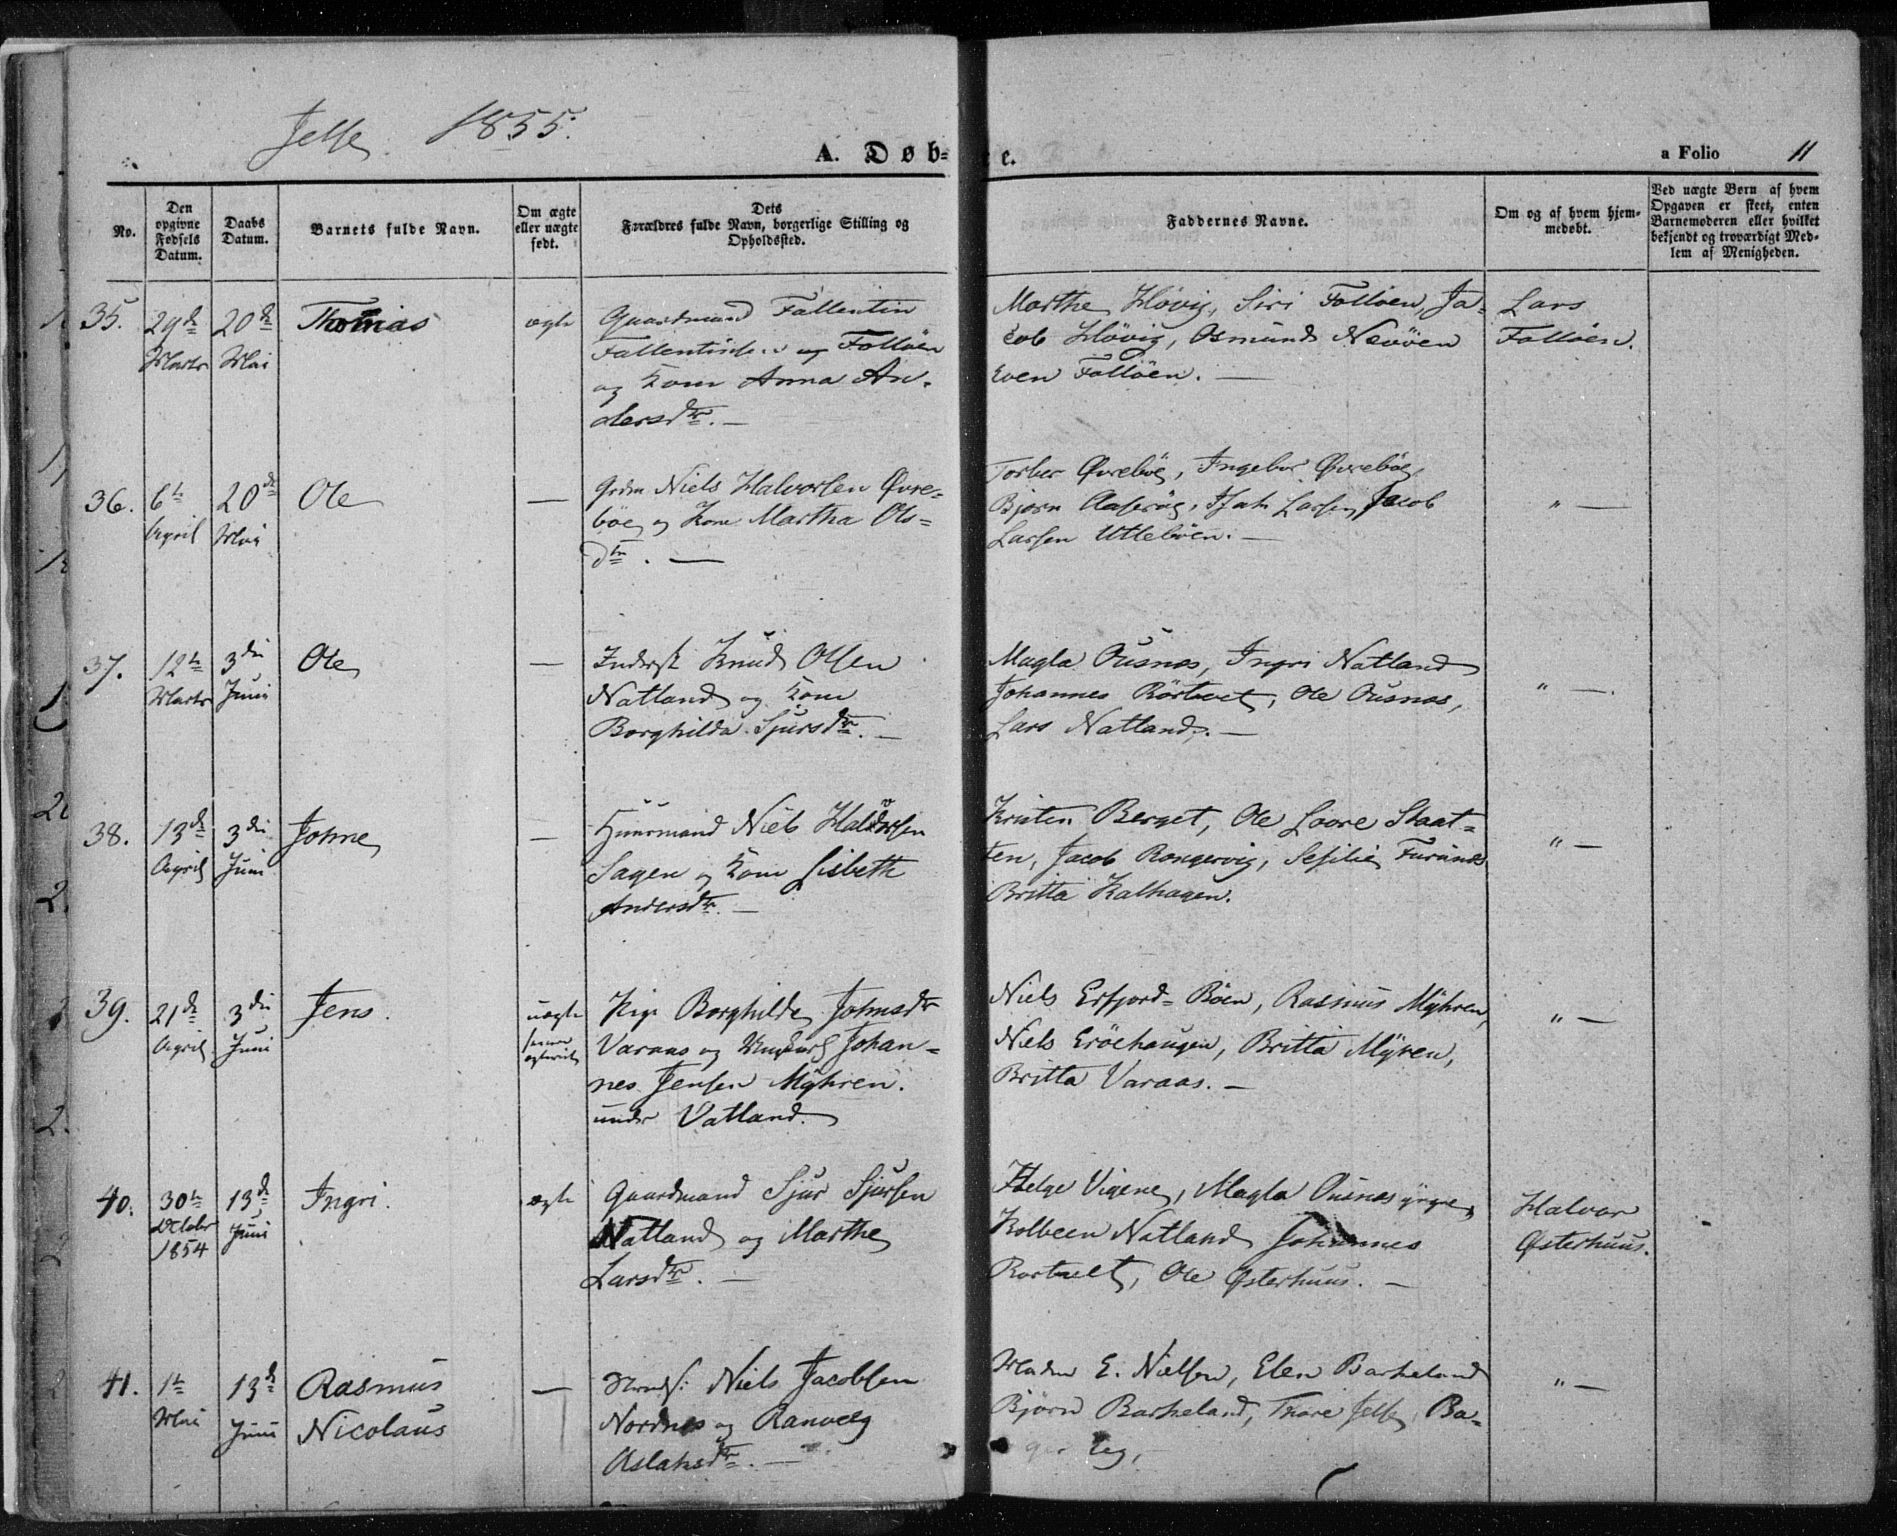 Jelse 1855.
A. Døb-
te.
a Folio 11
No.
Den
opgivne
Fødsels
Datum.
Daabs
Datum.
Barnets fulde Navn.
Om ægte
eller uægte
født.
Dets
Forældres fulde Navn, borgerlige Stilling og
Opholdssted.
Faddernes Navne.
Om og af hvem hjem-
medøbt.
Ved uægte Børn af hvem
Opgaven er skeet, enten
Barnemoderen eller hvilket
bekjendt og troværdigt Med-
lem af Menigheden.
35.
29de
Marts
20de
Mai
Thomas
ægte
Gaardmand Fallentin
Fallentinsen Folløen
og Kone Anna An-
dersdtr. —
Marthe Høvig, Siri Folløen, Ja-
cob Høvig, Osmund
Even Folløen. —
Lars
Folløen.
36.
6te
April
20de
Mai
Ole
—
Grdm Niels Halvorsen Øvre-
bøe og Kone Martha Ols-
dtr. —
Torber Øvrebøe, Ingebor Øvrebøe,
Bjørn Larsen, Jacob
Larsen Utlebøen. —
" —
37.
12te
Marts
3die
Juni
Ole
—
Inderst Knud Olsen
Natland og Kone
Borghilda Sjursdtr. —
Magla Ousnæs, Ingri Natland
Johannes Rörtvet, Ole Ousnæs,
Lars Natland. —
" —
38.
13de
April
3die
Juni
Johne
—
Huusmand Niels Haldorsen
Sagen og Kone Lisbeth
Andersdtr. —
Kristen Berget, Ole Loore Staat-
ten, Jacob Rangervig, Sesilie Furunes
Britta Kalhagen.
" —
39.
21de
April
3die
Juni
Jens.
uægte
Pige Borghilde Johnsdtr
Varaas og Ungkarl Johan-
nes Jensen Mÿhren.
under Vatland.
Niels Erfjord-Bøen, Rasmus Mÿhren,
Niels Erøehaugen, Britta Mÿren,
Britta Varaas. —
" —
40.
30te
October
1854
13de
Juni
Ingri.
ægte
Gaardmand Sjur Sjursen
Natland og Marthe
Larsdtr. —
Helge Vigene, Magla Ousnæs yngre,
Kolbeen Natland, Johannes
Rortvelt, Ole Østerhuus. —
Halvor
Østerhuus.
41.
1te
Mai
13de
Juni
Rasmus
Nicolaus
—
Niels Jacobsen
Nordnes og Ranveg
Aslaksdtr. —
Madm E. Nielsen, Elen Barkeland
Bjørn Barkeland, Thore Jelse, Ba-
" —